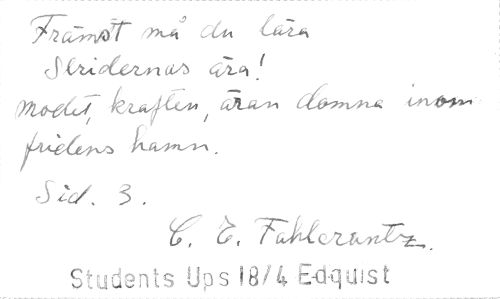 Främst må du lära
Stridernas ära!
modet, kraften, äran domna inom
fridens hamn.
Sid. 3.
C. E. Fahlcrantz.
Students Ups 18/4 Edquist